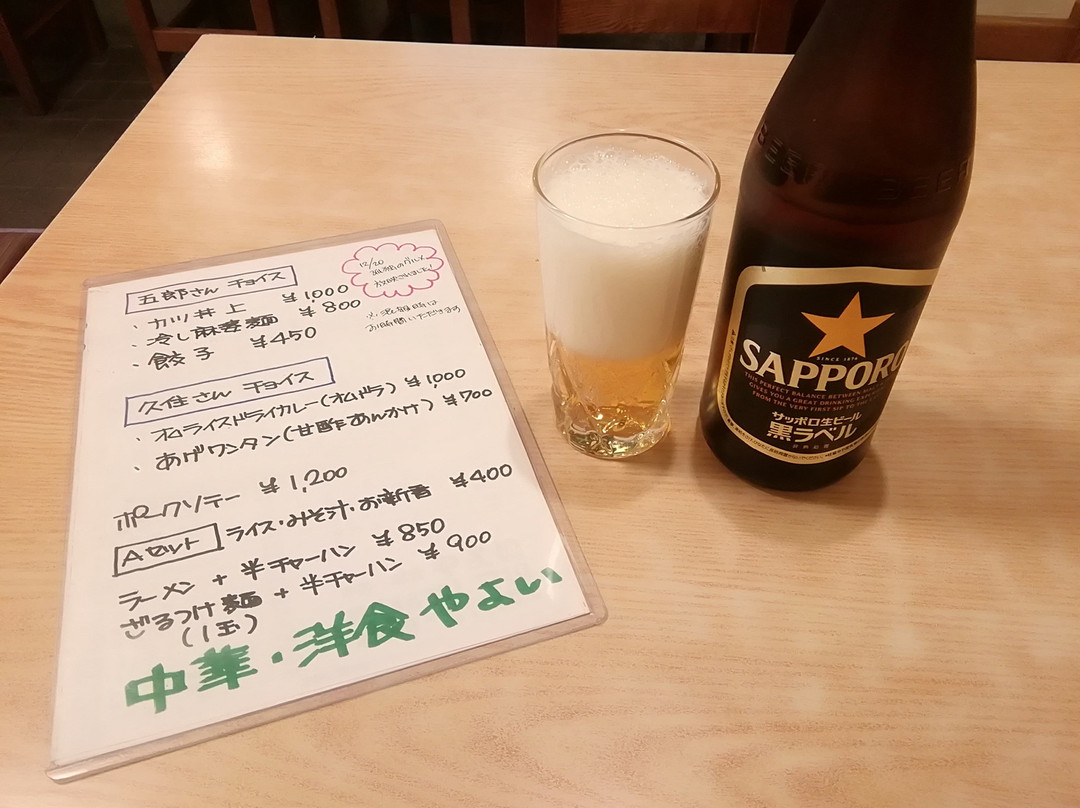 五郎さん チョイス
12/20
孤独のグルメ
放映されました!
・カツ丼上 ¥1,000
・冷し麻婆麺 ¥800
・餃子 ¥450
※混雑時は
お時間いただきます
久住さん チョイス
・オムライスドライカレー(オムドラ) ¥1,000
・あげワンタン(甘酢あんかけ) ¥700
ポークソテー ¥1,200
Aセット ライス・みそ汁・お新香 ¥400
ラーメン + 半チャーハン ¥850
ざるつけ麺 + 半チャーハン ¥900
(1玉)
中華・洋食 やよい
BEER
SINCE 1876
SAPPORO
THIS PERFECT BALANCE BETWEEN
GIVES YOU A GREAT DRINKING EXPERIENCE
FROM THE VERY FIRST SIP TO THE
サッポロ生ビール
黒ラベル